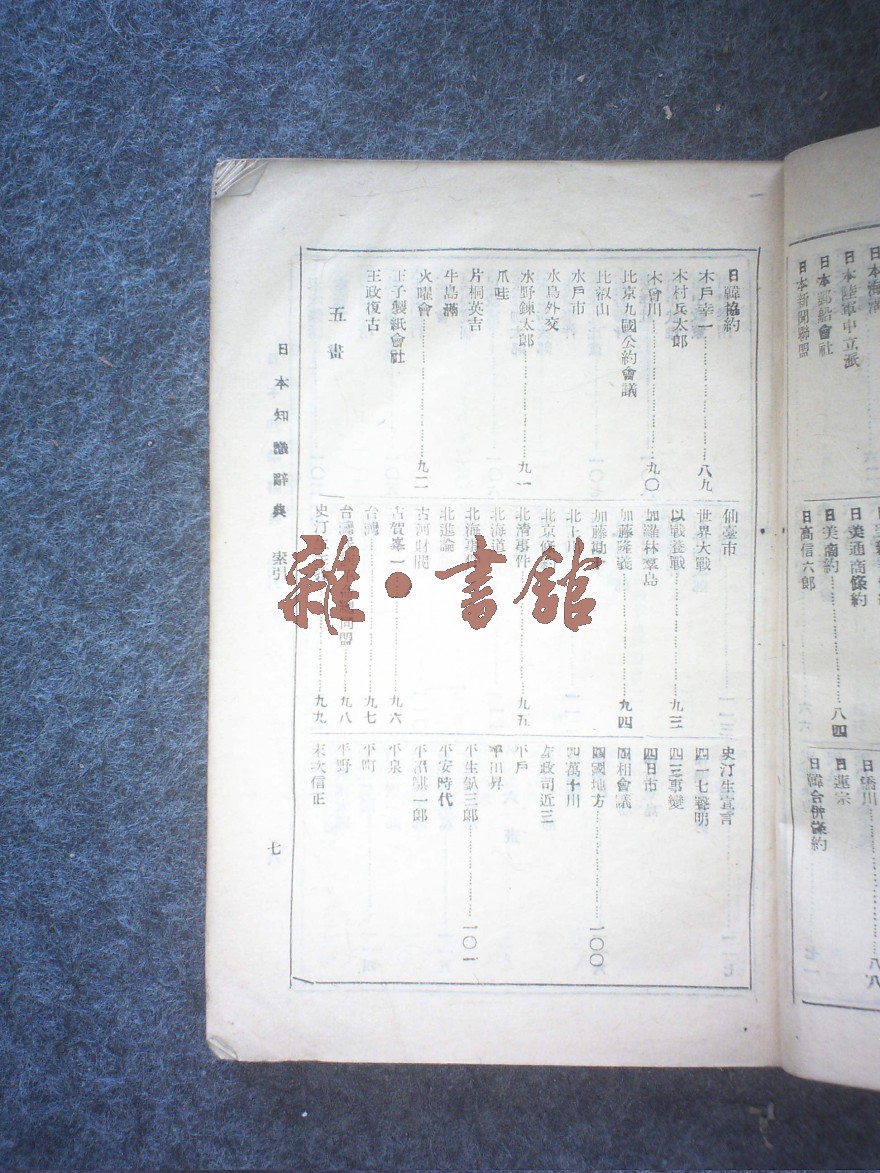 日本海溝
日本陸軍中立派
日本郵船會社
日本新聞聯盟
日美通商條約
日美商約……八四
日高信六郎
日橋川……八八
日蓮宗
日韓合併條約
日韓協約
木戶幸一……八九
木村兵太郎
木曾川……九〇
比京九國公約會議
比叡山
水戶市
水鳥外交
水野鍊太郎……九一
爪哇
片桐英吉
牛島滿
火曜會……九二
王子製紙會社
王政復古
五畫
仙臺市
世界大戰
以戰養戰……九三
加羅林羣島
加藤隆義……九四
加藤勘
北上
北京
北清事件……九五
北海道
北海事件
北進論
古河財閥
古賀峯一……九六
台灣……九七
台灣 同盟……九八
史汀……九九
史汀生宣言
四一七聲明
四三事變
四日市
四相會議
四國地方……一〇〇
四萬十川
左政司近三
平戶
平田昇
平生釟三郎……一〇一
平安時代
平沼騏一郎
平泉
平町
平野
末次信正
日本知識辭典 索引
七
雜·書館